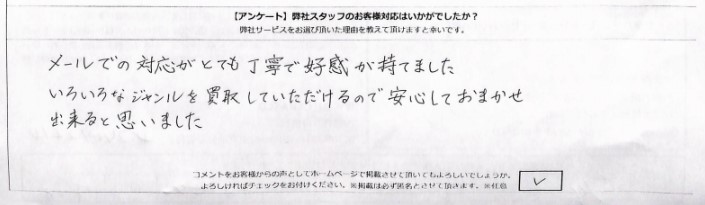 【アンケート】弊社スタッフのお客様対応はいかがでしたか？
弊社サービスをお選び頂いた理由を教えて頂けますと幸いです。
メールでの対応がとても丁寧で好感が持てました
いろいろなジャンルを買取していただけるので安心しておまかせ
出来ると思いました
コメントをお客様からの声としてホームページで掲載させて頂いてもよろしいでしょうか。
よろしければチェックをお付けください。※掲載は必ず匿名とさせて頂きます。※任意